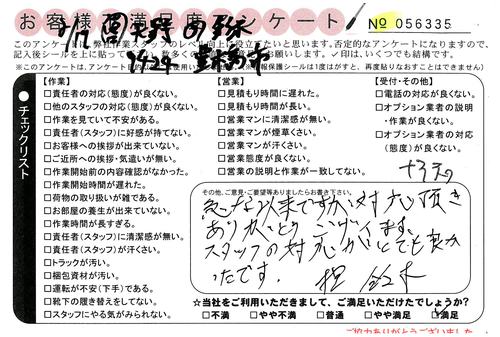 お客様 満足度アンケート
№ 056335
このアンケートは、弊社作業スタッフのレベル向上に役立てたいと思います。否定的なアンケートになりますので、
チェックリスト
【作業】
□責任者の対応(態度)が良くない。
□他のスタッフの対応(態度)が良くない。
□作業を見ていて不安がある。
□責任者(スタッフ)に好感が持てない。
□お客様への挨拶が出来ていない。
□ご近所への挨拶・気遣いが無い。
□作業開始前の内容確認がなかった。
□作業開始時間が遅れた。
□荷物の取り扱いが雑である。
□お部屋の養生が出来ていない。
□作業時間が長すぎる。
□責任者(スタッフ)に清潔感が無い。
□責任者(スタッフ)が汗くさい。
□トラックが汚い。
□梱包資材が汚い。
□運転が不安(下手)である。
□靴下の履き替えをしてない。
□スタッフにやる気がみられない。
【営業】
□見積もり時間に遅れた。
□見積もり時間が長い。
□営業マンに清潔感が無い。
□営業マンが煙草くさい。
□営業マンが汗くさい。
□営業態度が良くない。
□営業の説明と作業が一致してない。
【受付・その他】
□電話の対応が良くない。
□オプション業者の説明
・作業が良くない。
□オプション業者の対応
(態度)が良くない。
その他、ご意見・ご要望等ありましたらお書き下さい。
急な以来ですが対応頂き
ありがとうございます。
スタッフの対応がとても良か
ったです。 担 鈴木
☆当社をご利用いただきまして、ご満足いただけたでしょうか?
□不満 □やや不満 □普通 □やや満足 □満足
ご協力ありがとうございました